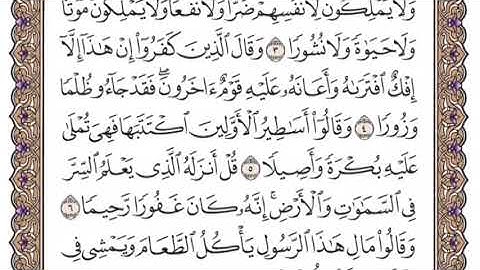 وَلَا يَمْلِكُونَ لِأَنفُسِهِمْ ضَرًّا وَلَا نَفْعًا وَلَا يَمْلِكُونَ مَوْتًا
وَلَا حَيَوٰةً وَلَا نُشُورًا ٣ وَقَالَ ٱلَّذِينَ كَفَرُوٓا۟ إِنْ هَٰذَآ إِلَّآ
إِفْكٌ ٱفْتَرَىٰهُ وَأَعَانَهُۥ عَلَيْهِ قَوْمٌ ءَاخَرُونَ ۖ فَقَدْ جَآءُو ظُلْمًا
وَزُورًا ٤ وَقَالُوٓا۟ أَسَٰطِيرُ ٱلْأَوَّلِينَ ٱكْتَتَبَهَا فَهِىَ تُمْلَىٰ
عَلَيْهِ بُكْرَةً وَأَصِيلًا ٥ قُلْ أَنزَلَهُ ٱلَّذِى يَعْلَمُ ٱلسِّرَّ
فِى ٱلسَّمَٰوَٰتِ وَٱلْأَرْضِ ۚ إِنَّهُۥ كَانَ غَفُورًا رَّحِيمًا ٦
وَقَالُوا۟ مَالِ هَٰذَا ٱلرَّسُولِ يَأْكُلُ ٱلطَّعَامَ وَيَمْشِى فِى